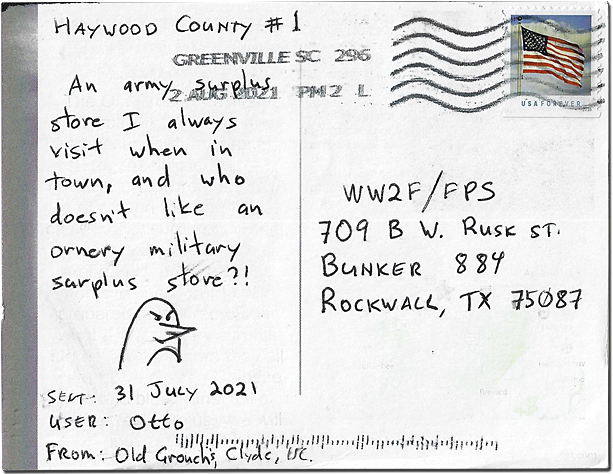 HAYWOOD COUNTY #1
GREENVILLE SC 296
2 AUG 2021 PM 2 L
An army surplus
store I always
visit when in
town, and who
doesn't like an
ornery military
surplus store?!
SENT: 31 JULY 2021
USER: Otto
FROM: Old Grouch's, Clyde, NC.
USA FOREVER
WW2F/FPS
709 B W. RUSK ST.
BUNKER 884
ROCKWALL, TX 75087